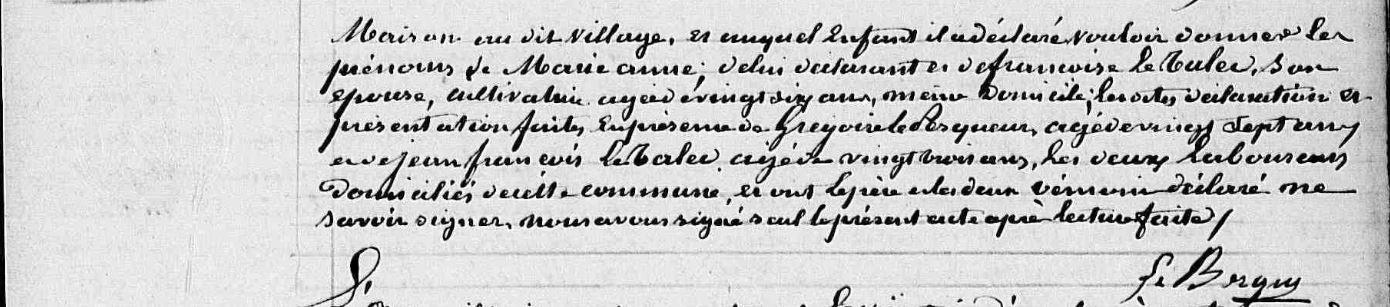 Maison au dit village, et auquel Enfant il a déclaré vouloir donner les
prénoms de Marie anne; de lui déclarant et de françoise le Taler, son
épouse, cultivatrice agée de vingt six ans, même Domicile; les dites déclaration et
présentation faites En présence de Grégoire le agé de vingt Sept ans
et de jean françois le Taler agé de vingt trois ans, les deux laboureurs
Domiciliés de cette commune, et ont le père et les deux témoins déclaré ne
savoir signer, nous avons signé seul le présent acte après lecture faite /